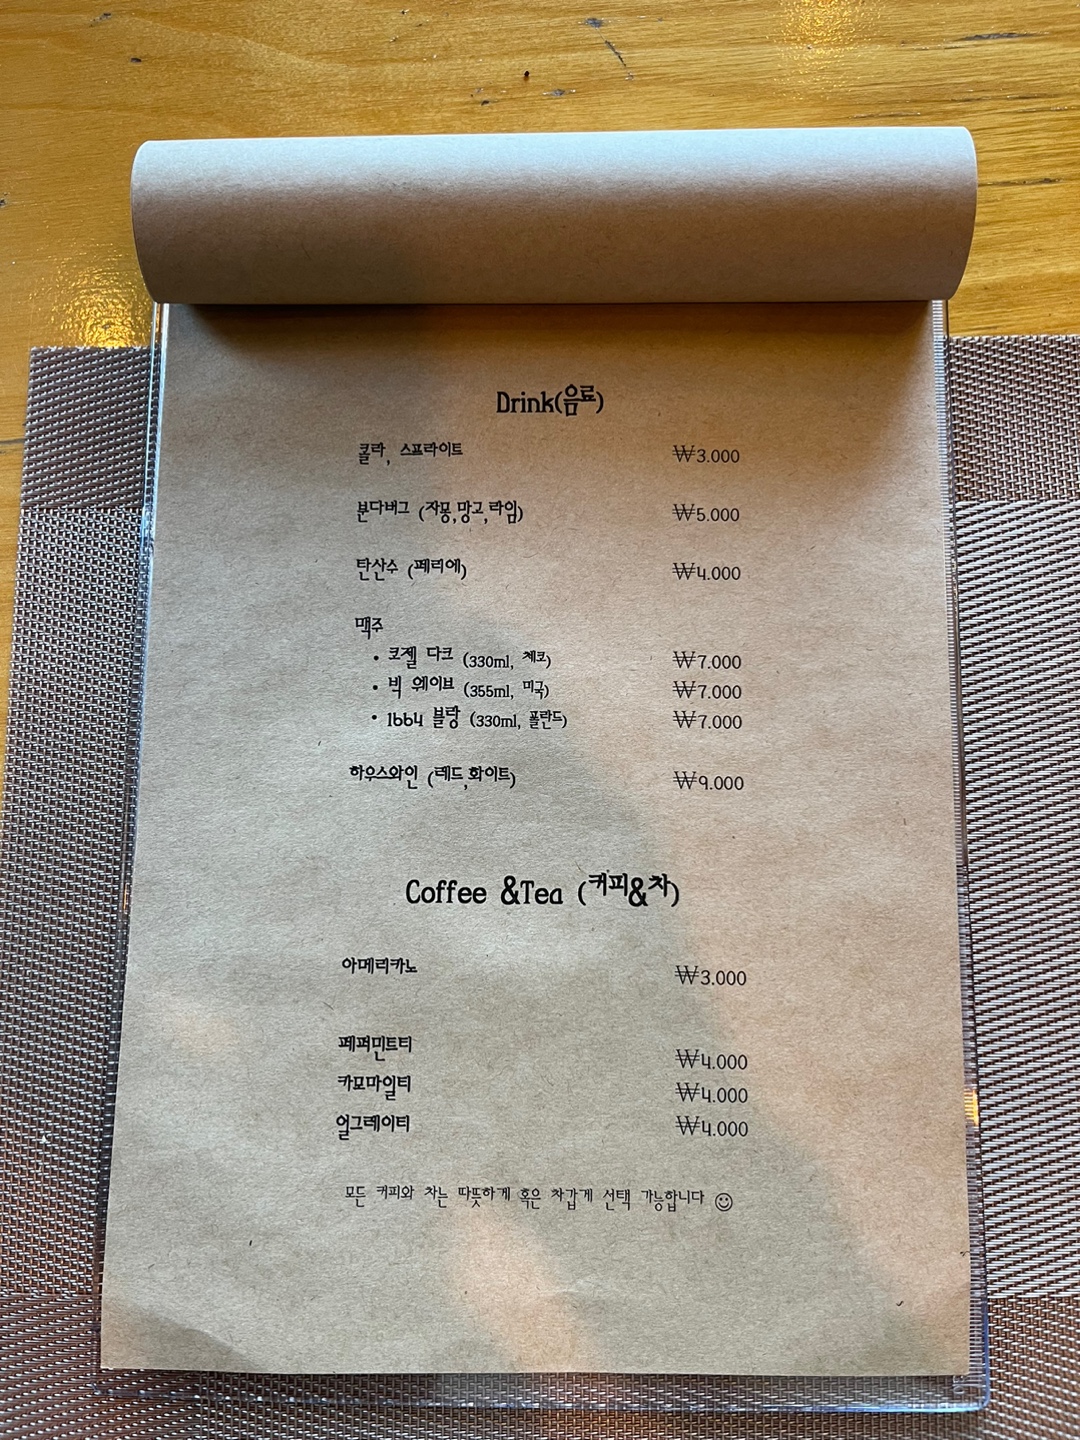 Drink(음료)
콜라, 스프라이트 ₩3.000
분다버그 (자몽,망고,라임) ₩5.000
탄산수 (페리에) ₩4.000
맥주
• 코젤 다크 (330ml, 체코) ₩7.000
• 빅 웨이브 (355ml, 미국) ₩7.000
• 1664 블랑 (330ml, 폴란드) ₩7.000
하우스와인 (레드,화이트) ₩9.000
Coffee &Tea (커피&차)
아메리카노 ₩3.000
페퍼민트티 ₩4.000
카모마일티 ₩4.000
얼그레이티 ₩4.000
모든 커피와 차는 따뜻하게 혹은 차갑게 선택 가능합니다 ☺